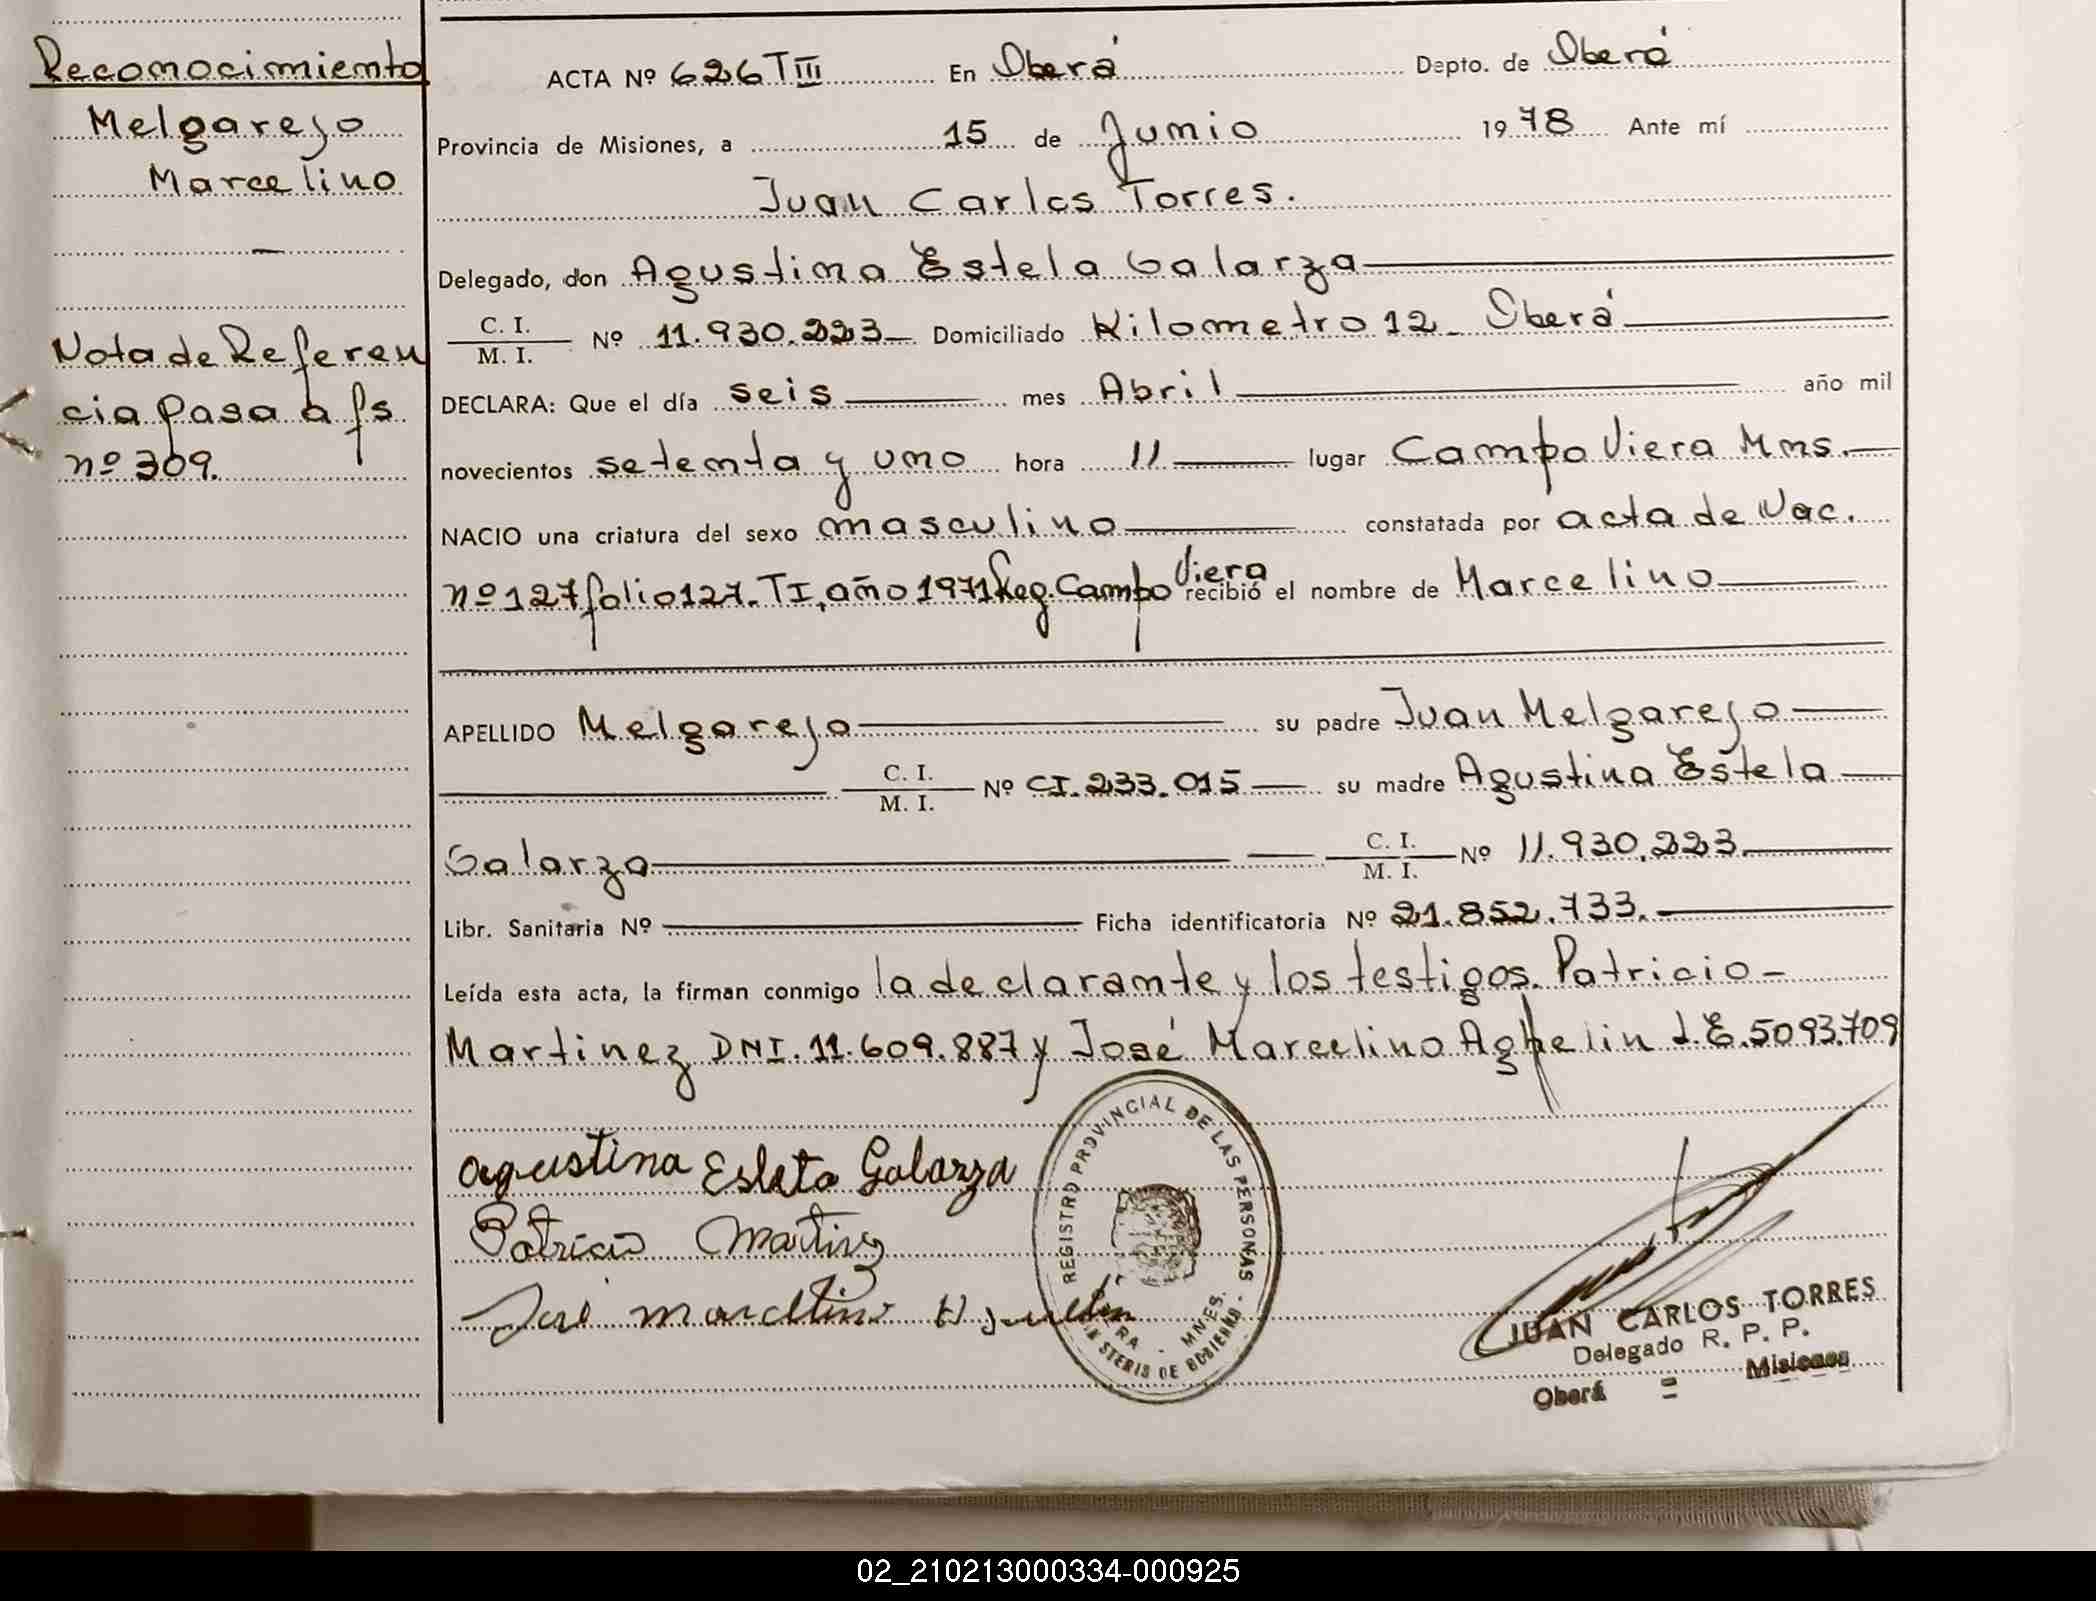 Reconocimiento
Melgarejo
Marcelino
Nota de Referen
cia pasa a fs
nº 309.
ACTA Nº 626 TIII En Oberá Depto. de Oberá
Provincia de Misiones, a 15 de Junio 1978 Ante mí
Juan Carlos Torres.
Delegado, don Agustina Estela Galarza
C. I.
M. I. Nº 11.930.223 Domiciliado Kilometro 12 - Oberá
DECLARA: Que el día seis mes Abril año mil
novecientos setenta y uno hora 11 lugar Campo Viera Mns.
NACIO una criatura del sexo masculino constatada por acta de Nac.
nº 127 folio 127. TI, año 1971 Reg. Campo Viera recibió el nombre de Marcelino
APELLIDO Melgarejo su padre Juan Melgarejo
C. I.
M. I. Nº CI. 233.015 su madre Agustina Estela
Galarza C. I.
M. I. Nº 11.930.223.
Libr. Sanitaria Nº Ficha identificatoria Nº 21.852.733.
Leída esta acta, la firman conmigo la declarante y los testigos. Patricio -
Martinez DNI. 11.609.887 y José Marcelino L.E. 5093.709
Agustina Estela Galarza
Patricio Martinez
José Marcelino
REGISTRO PROVINCIAL DE LAS PERSONAS
OBERA - MNES.
MINISTERIO DE GOBIERNO
JUAN CARLOS TORRES
Delegado R. P. P.
Oberá = Misiones
02_210213000334-000925